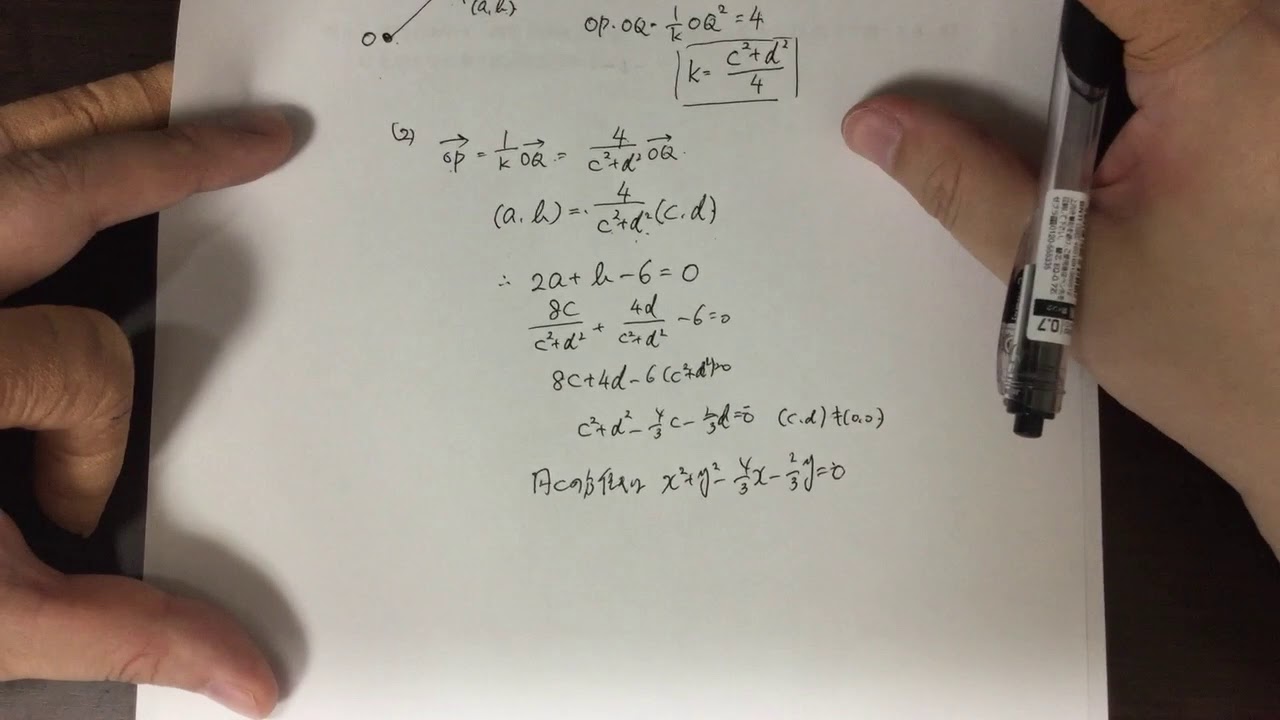 (a,b)
O
OP・OQ = 1/k OQ² = 4
k = (c²+d²)/4
(2) →OP = 1/k →OQ = 4/(c²+d²) →OQ.
(a,b) = 4/(c²+d²) (c.d)
∴ 2a+b-6=0
8c/(c²+d²) + 4d/(c²+d²) - 6 = 0
8c+4d-6(c²+d²)=0
c²+d²-4/3c-2/3d=0 (c.d)≠(0,0)
円Cの方程式は x²+y²-4/3x-2/3y=0
0.7